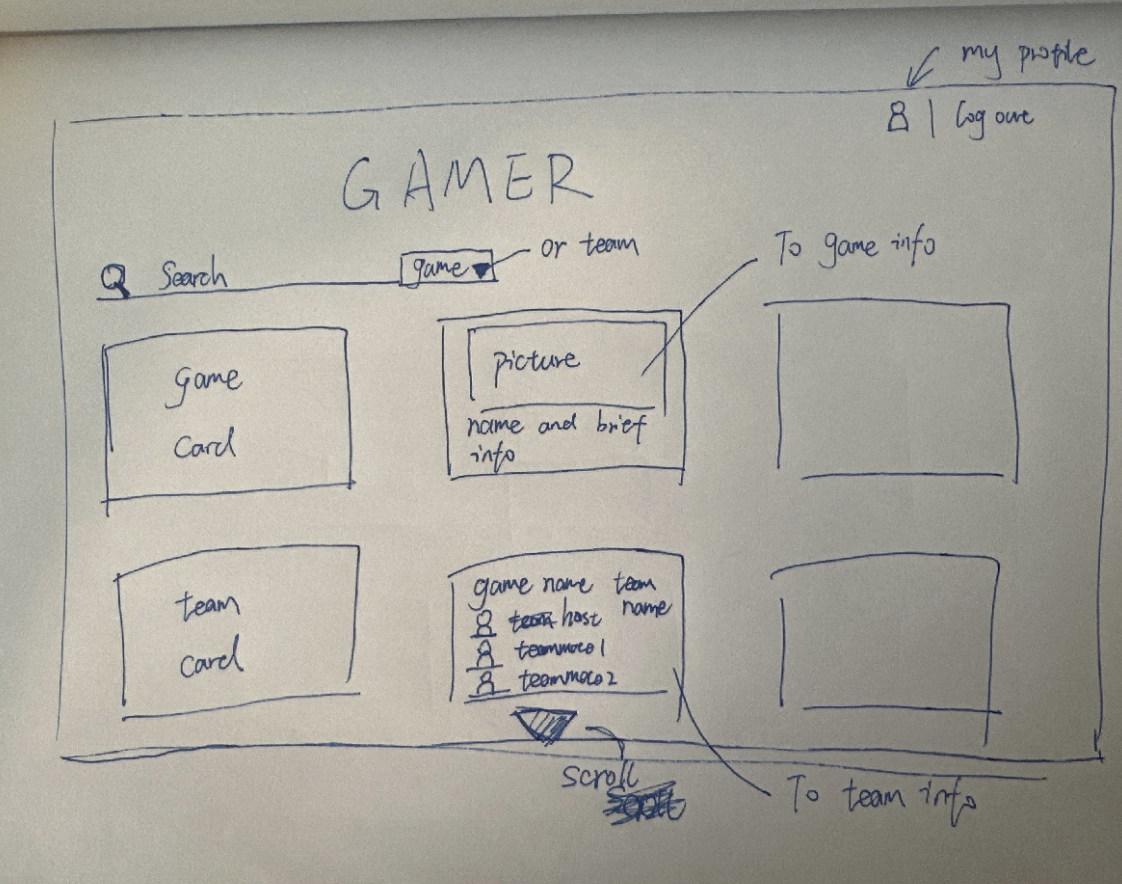 my profile
| Log out
GAMER
Search
game
or team
To game info
game
card
picture
name and brief
info
team
card
game name team
name
host
teammate1
teammate2
scroll
To team info